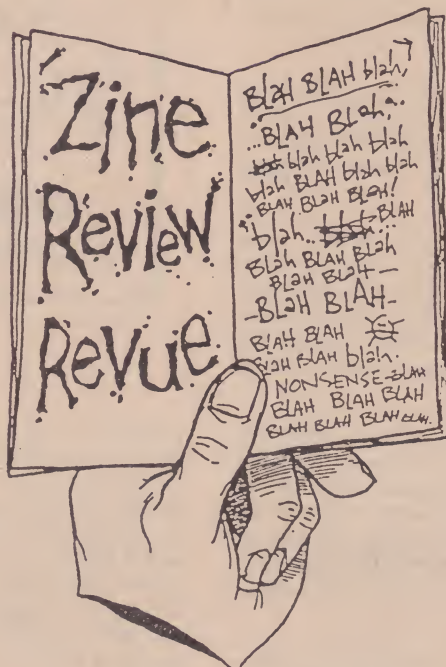 Zine
Review
Revue
BLaH BLAH blah,
...BLAH BLah,..
blah blah blah
blah BLAH blah blah
BLAH BLah BLaH!
blah.. BLAH
BLah BLAH BLah
BLah BLaH—
-BLaH BLAH-
BLAH BLAH
BLAH BLAH blah.
NONSENSE-BLAH
BLAH BLAH BLAH
BLAH BLAH BLAH BLAH.